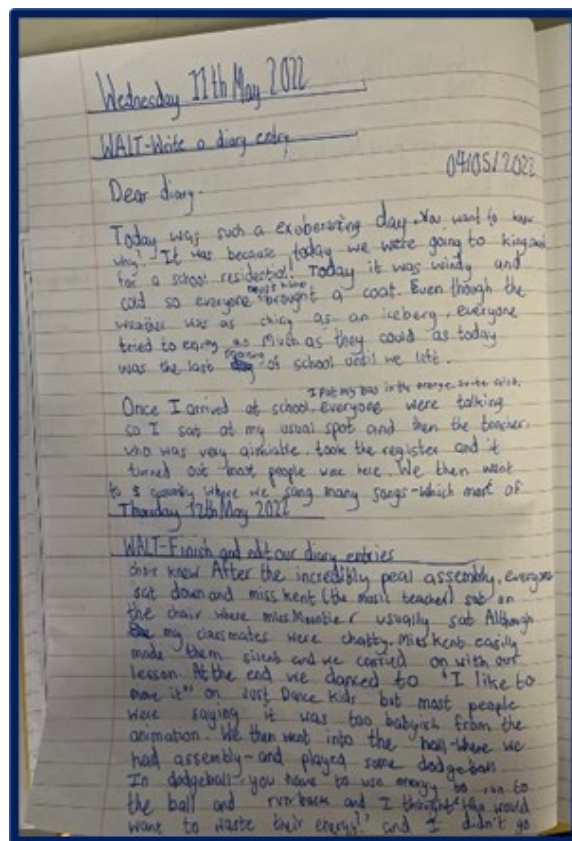 Wednesday 11th May 2022
WALT-Write a diary entry
04/05/2022
Dear diary.
Today was such a exoberating day. You want to know
why? It was because today we were going to
for a school residential! Today it was windy and
cold so everyone brought a coat. Even though the
weather was as as an iceberg, everyone
tried to as much as they could as today
was the last of school until we left.
I put my bag in the orange
Once I arrived at school, everyone were talking
so I sat at my usual spot and then the teacher,
who was very aimiable, took the register and it
turned out most people were here. We then went
to where we sang many songs-which most of
Thursday 12th May 2022
WALT-Finish and edit our diary entries
choir knew After the incredibly assembly, everyone
sat down and miss Kent (the music teacher) sat on
the chair where miss usually sat Although
my classmates were chatty. Miss Kent easily
made them silent and we carried on with our
lesson. At the end we danced to "I like to
move it" on Just Dance Kids but most people
were saying it was too babyish from the
animation. We then went into the hall-where we
had assembly-and played some dodgeball.
In dodgeball, you have to use energy to run to
the ball and run back and I thought "Who would
want to waste their energy?" and I didn't go